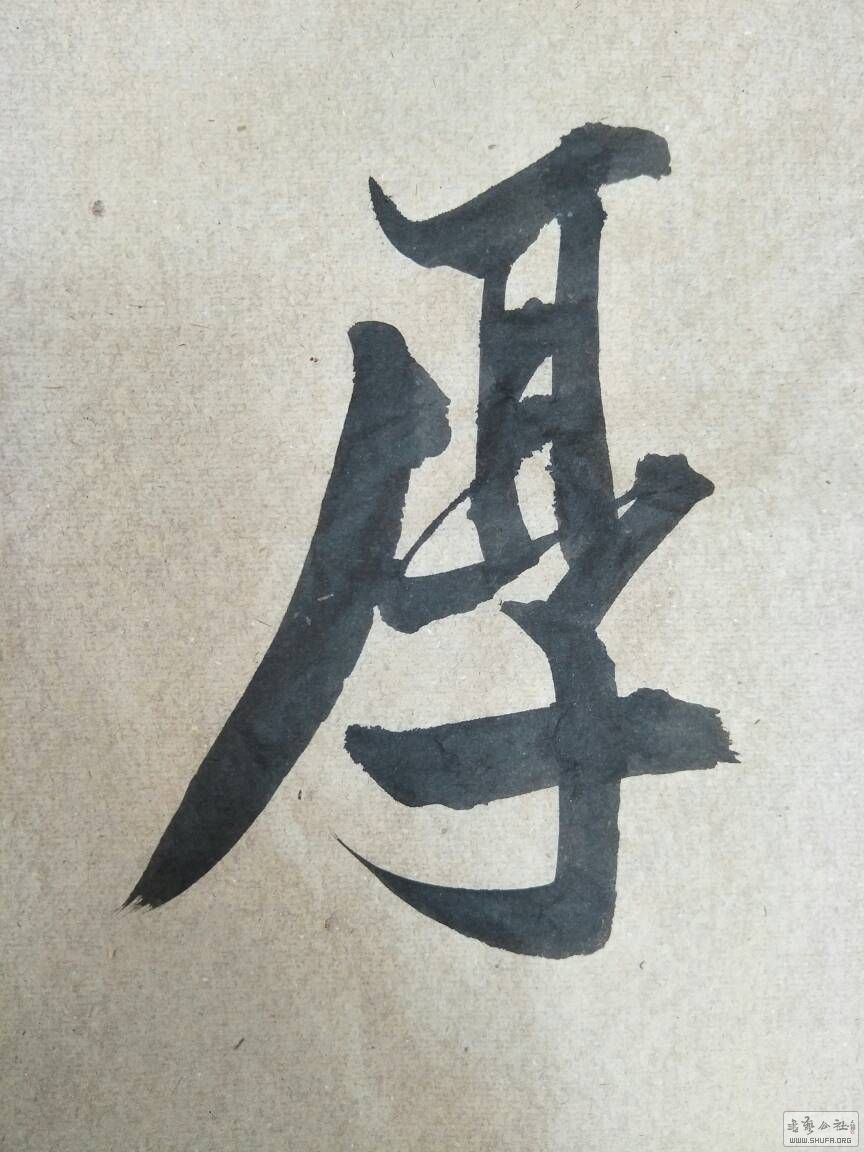 厚
书藝公社
WWW.SHUFA.ORG